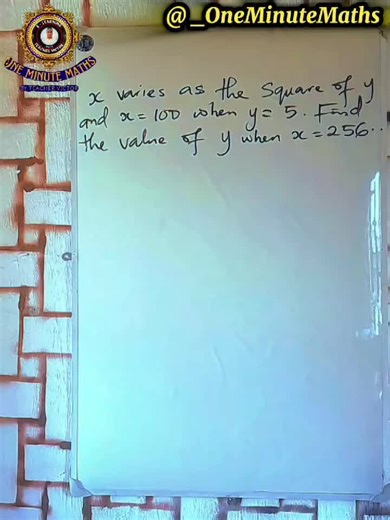 @_OneMinuteMaths
ONE MINUTE MATHS
x varies as the square of y
and x = 100 when y = 5. Find
the value of y when x = 256..